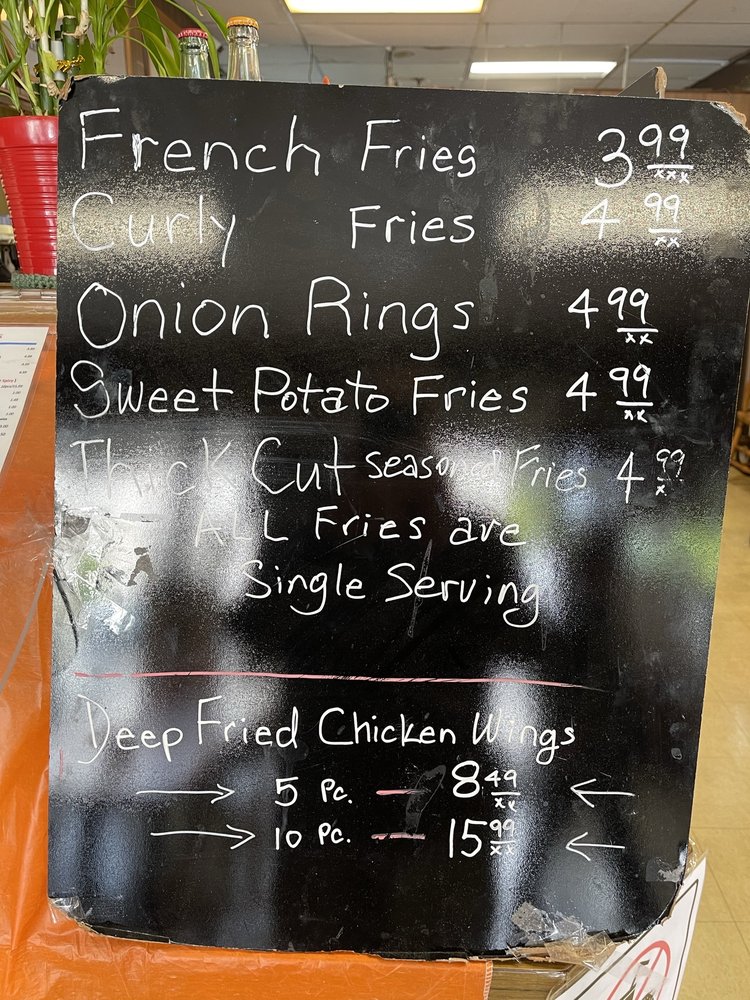 French Fries 3 99/xxx
Curly Fries 4 99/xx
Onion Rings 4 99/xx
Sweet Potato Fries 4 99/xx
Thick Cut Seasoned Fries 4 99/x
ALL Fries are
Single Serving
Deep Fried Chicken Wings
→ 5 Pc. — 8 49/xx ←
→ 10 Pc. — 15 99/xx ←